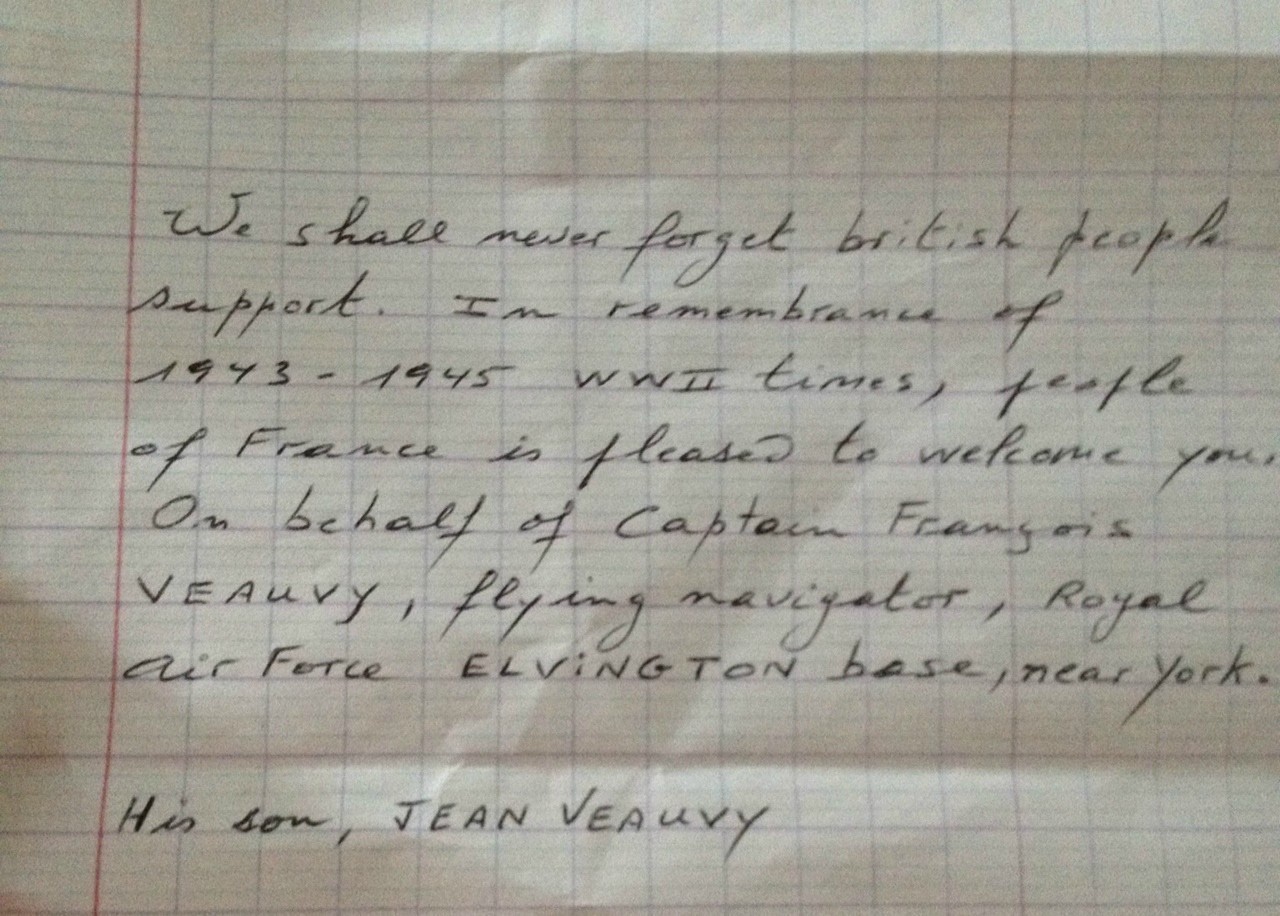 We shall never forget british people
support. In remembrance of
1943 - 1945 WWII times, people
of France is pleased to welcome you.
On behalf of Captain François
VEAUVY, flying navigator, Royal
air Force ELViNGTON base, near York.
His son, JEAN VEAUVY